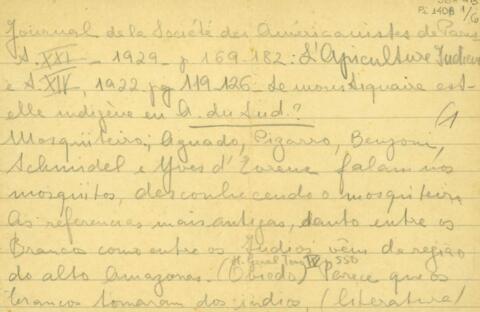 Pi 140B 1/6
Journal de la Société des Américanistes de Paris
t. XXI - 1929 - p 169-182: L'Apiculture Indienne
e t. XIV, 1922 pg 119-126 - Le moustiquaire est-
elle indigène en A. du Sud?
Mosquiteiro; Aguado, Pizarro, Benzoni,
Schmidel e Yves d'Evreux falam nos
mosquitos, desconhecendo o mosquiteiro
As referencias mais antigas, tanto entre os
Brancos como entre os Indios vêm da região
H. Geral Tom IV p 550
do alto Amazonas. (Oviedo) Parece que os
brancos tomaram dos indios, (literatura)